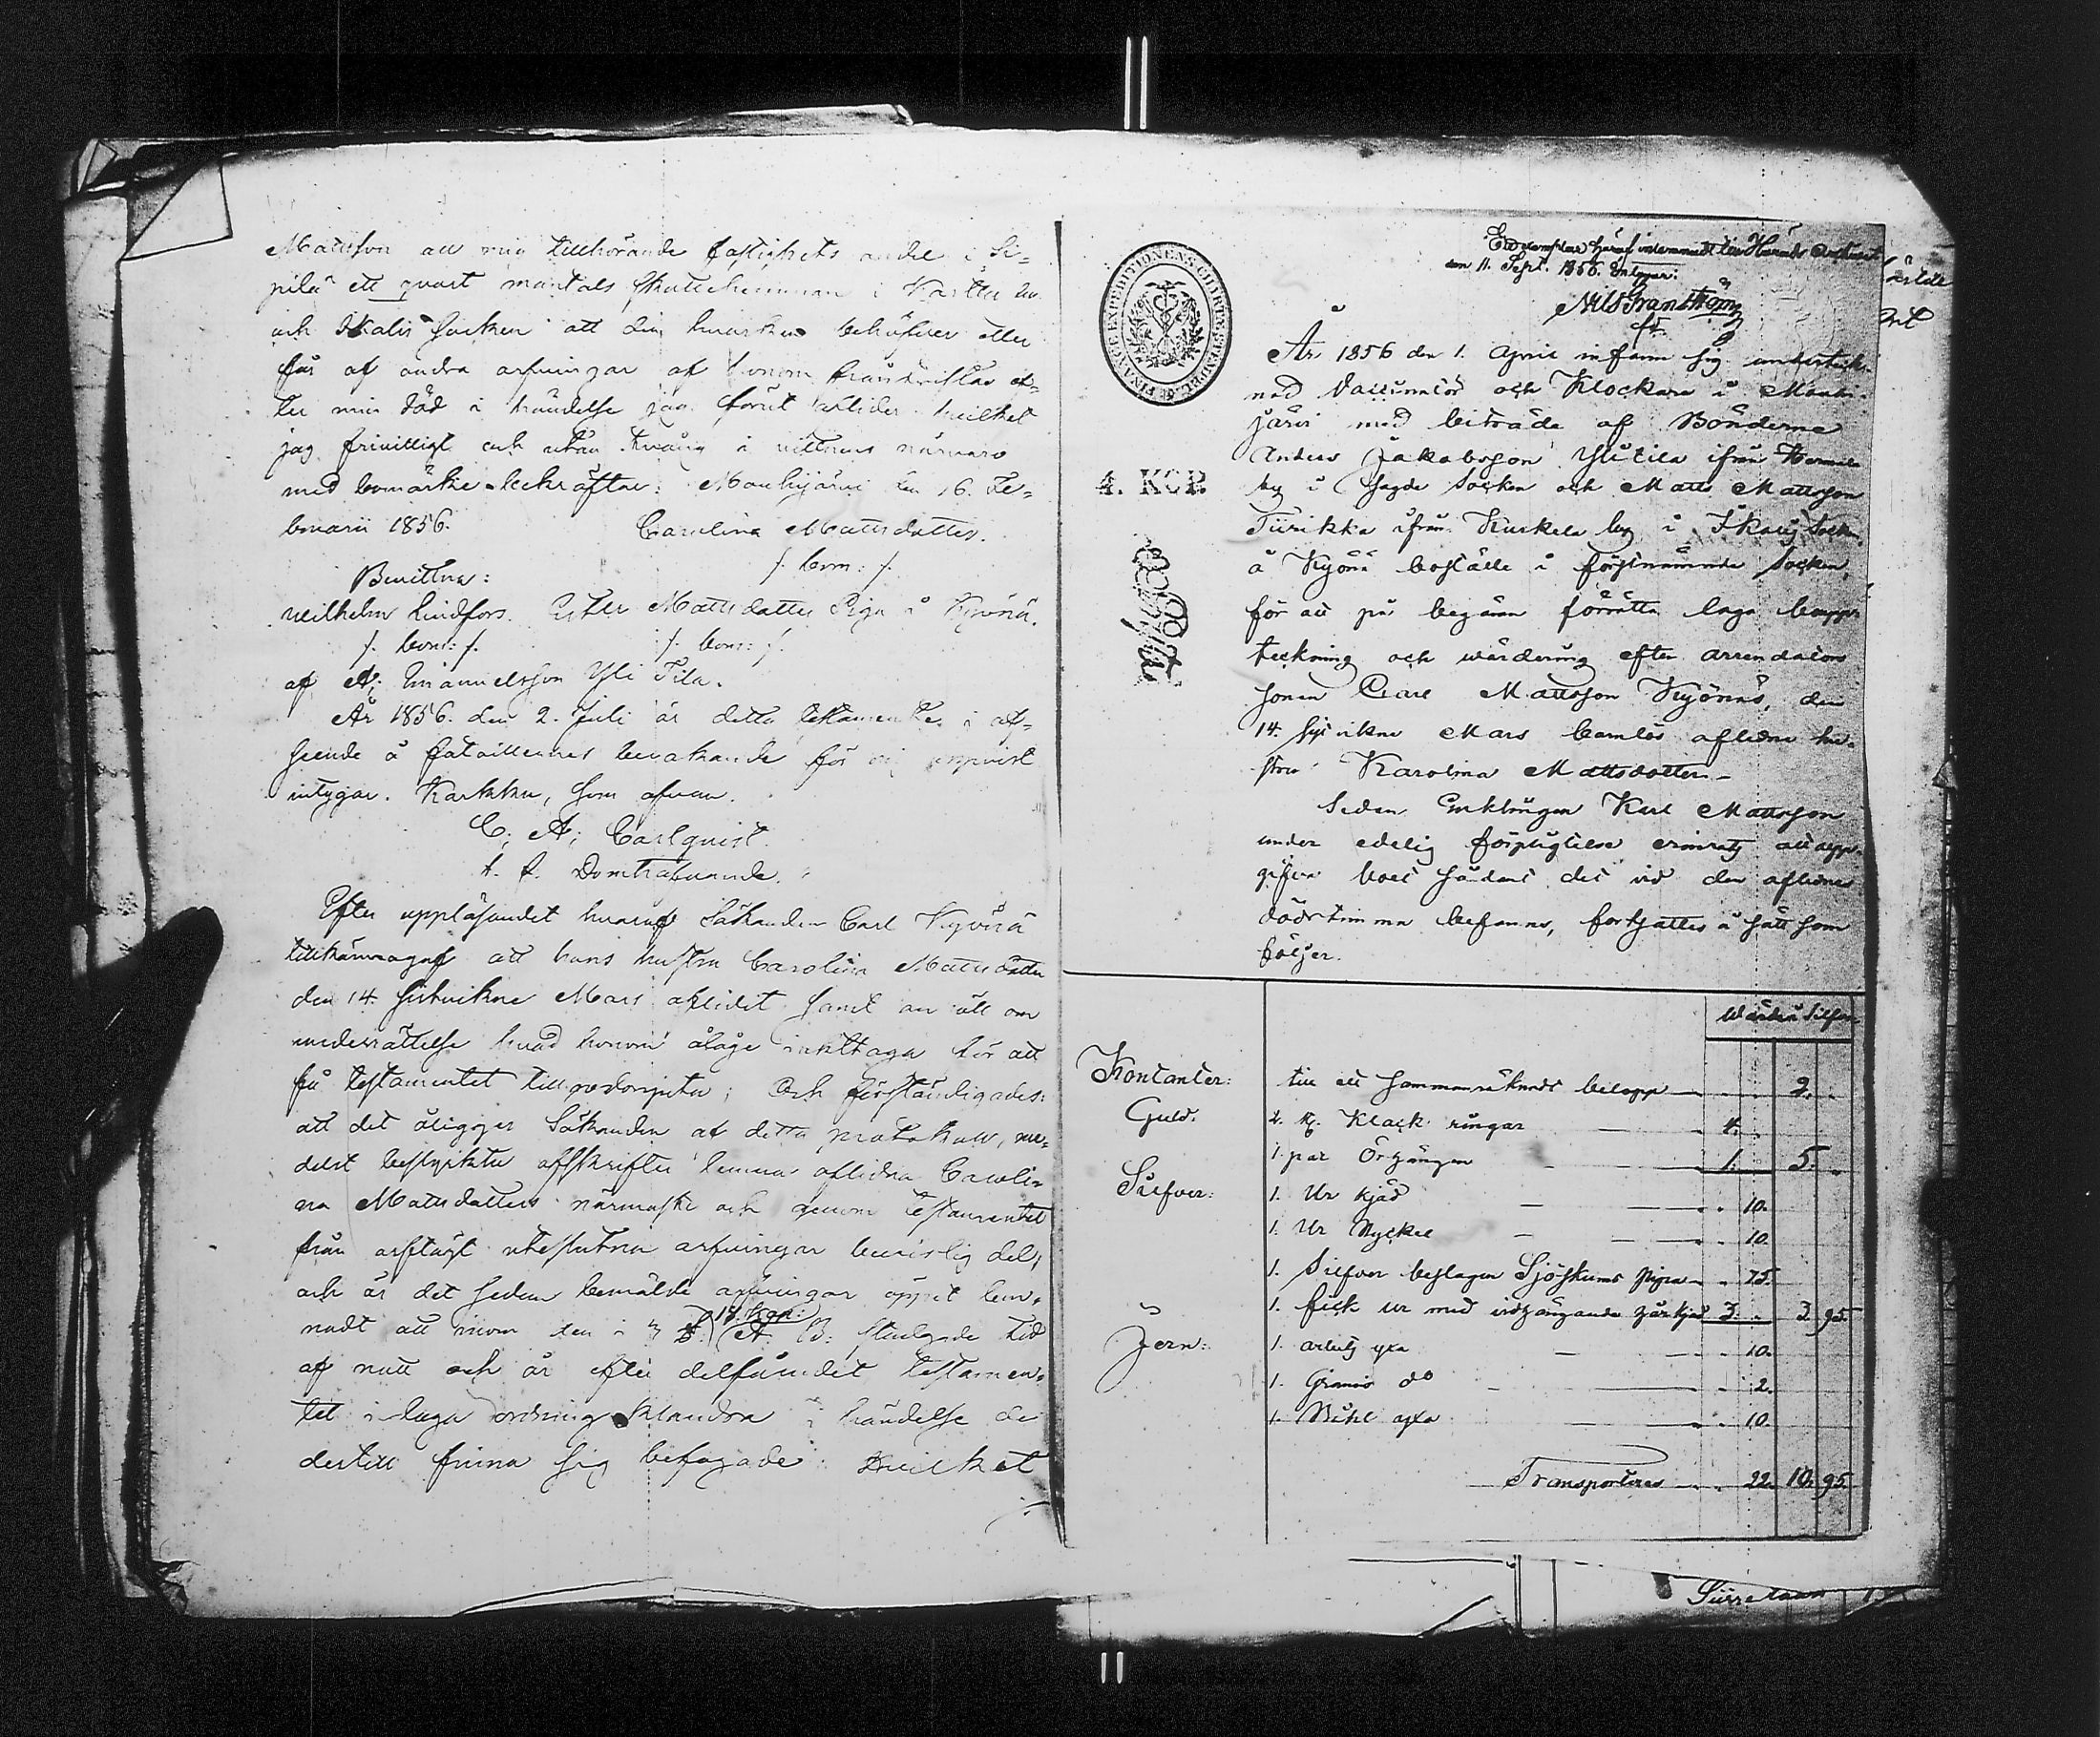 Mattsson all mig tillhörande fastighets andel i Si=
pilä ett quart mantals skattehemman i Karttu by
och Ikalis Socken att den hvarken behöfver eller
får af andra arfvingar af honom frånkräftas ef=
ter min död i händelse jag förut aflider hvilket
jag frivilligt och utan tvång i vittnens närvaro
med bomärke bekräftar. Mouhijärvi den 16. Fe=
bruarii 1856. Carolina Mattsdotter.
/. bom: /.
Bevittna:
Wilhelm Lindfors. Ester Mattsdotter Piga å Kyönä.
/. bom: /. /. bom: /.
af A; Emanuelsson Yli Tila.
År 1856. den 2. Juli är detta testamente i af=
seende å fataliernas bevakande för mig uppvist
intygar. Karkku, som ofvan.
C; A; Carlquist.
t. f. Domhafvande.
Efter uppläsandet hvaraf Sökanden Carl Kyönä
tillkännagaf att hans hustru Carolina Mattsdotter
den 14. sistvikne Mars aflidit samt an höll om
underrättelse hvad honom ålåge iakttaga för att
få testamentet till godonjuta; Och förständigades:
att det åligger Sökanden af detta protokoll, me=
delst bestyrkta afskrifter lemna aflidna Caroli=
na Mattsdotters närmaste och genom testamentet
från arfslagt uteslutna arfvingar bevislig del,
och är det sedan bemälde arfvingar öppet lem=
nadt att inom den i 18 Kap: Ä. B: stadgade tid
af natt och år efter delfåendet testamen=
tet i laga ordning klandra i händelse de
dertill finna sig befogade. Hvilket
Ett exemplar häraf inlemnadt till Härads Archivet
den 11. Sept. 1856. Intygar:
Nils Granström
FINANCE EXPEDITIONENS CHARTESTEMPEL
4. KOP.
År 1856 den 1. April infann sig underteck-
nad Vallumlös och Klockare i Mouhi-
järvi med biträde af Bönderne
Anders Jakobsson Ylitila ifrån Hermala
by i sagde Socken och Matts Mattsson
Tiirikka ifrån Kurkela by i Ikalis Socken,
å Kyönä boställe i förstnämnde Socken,
för att på begäran förrätta laga boupp-
teckning och wärdering efter arrendators
sonen Carl Mattsson Kyönäs, den
14. sistvikne Mars barnlös aflidna hu-
stru Karolina Mattsdotter.
Sedan Enklingen Karl Mattsson
under edelig förpligtelse erinrats att upp-
gifva boet sådant det vid den aflidnas
dödstimma befanns, fortsattes å sätt som
följer.
Wärde i Silfver
Kontanter: till ett sammanräknadt belopp 2.
Guld. 2. st. Klack ringar 4.
1. par Örhängen 1. 5.
Silfver: 1. Ur kjäd 10.
1. Ur Nyckel 10.
1. Silfver beslagen Sjöskums pipa 75.
1. fick ur med vidhängande kjäd 3. 3 95.
Jern: 1. arbets yxa 10.
1. Gramis do 2.
1. Bihl yxa 10.
Transporteras 22. 10. 95.